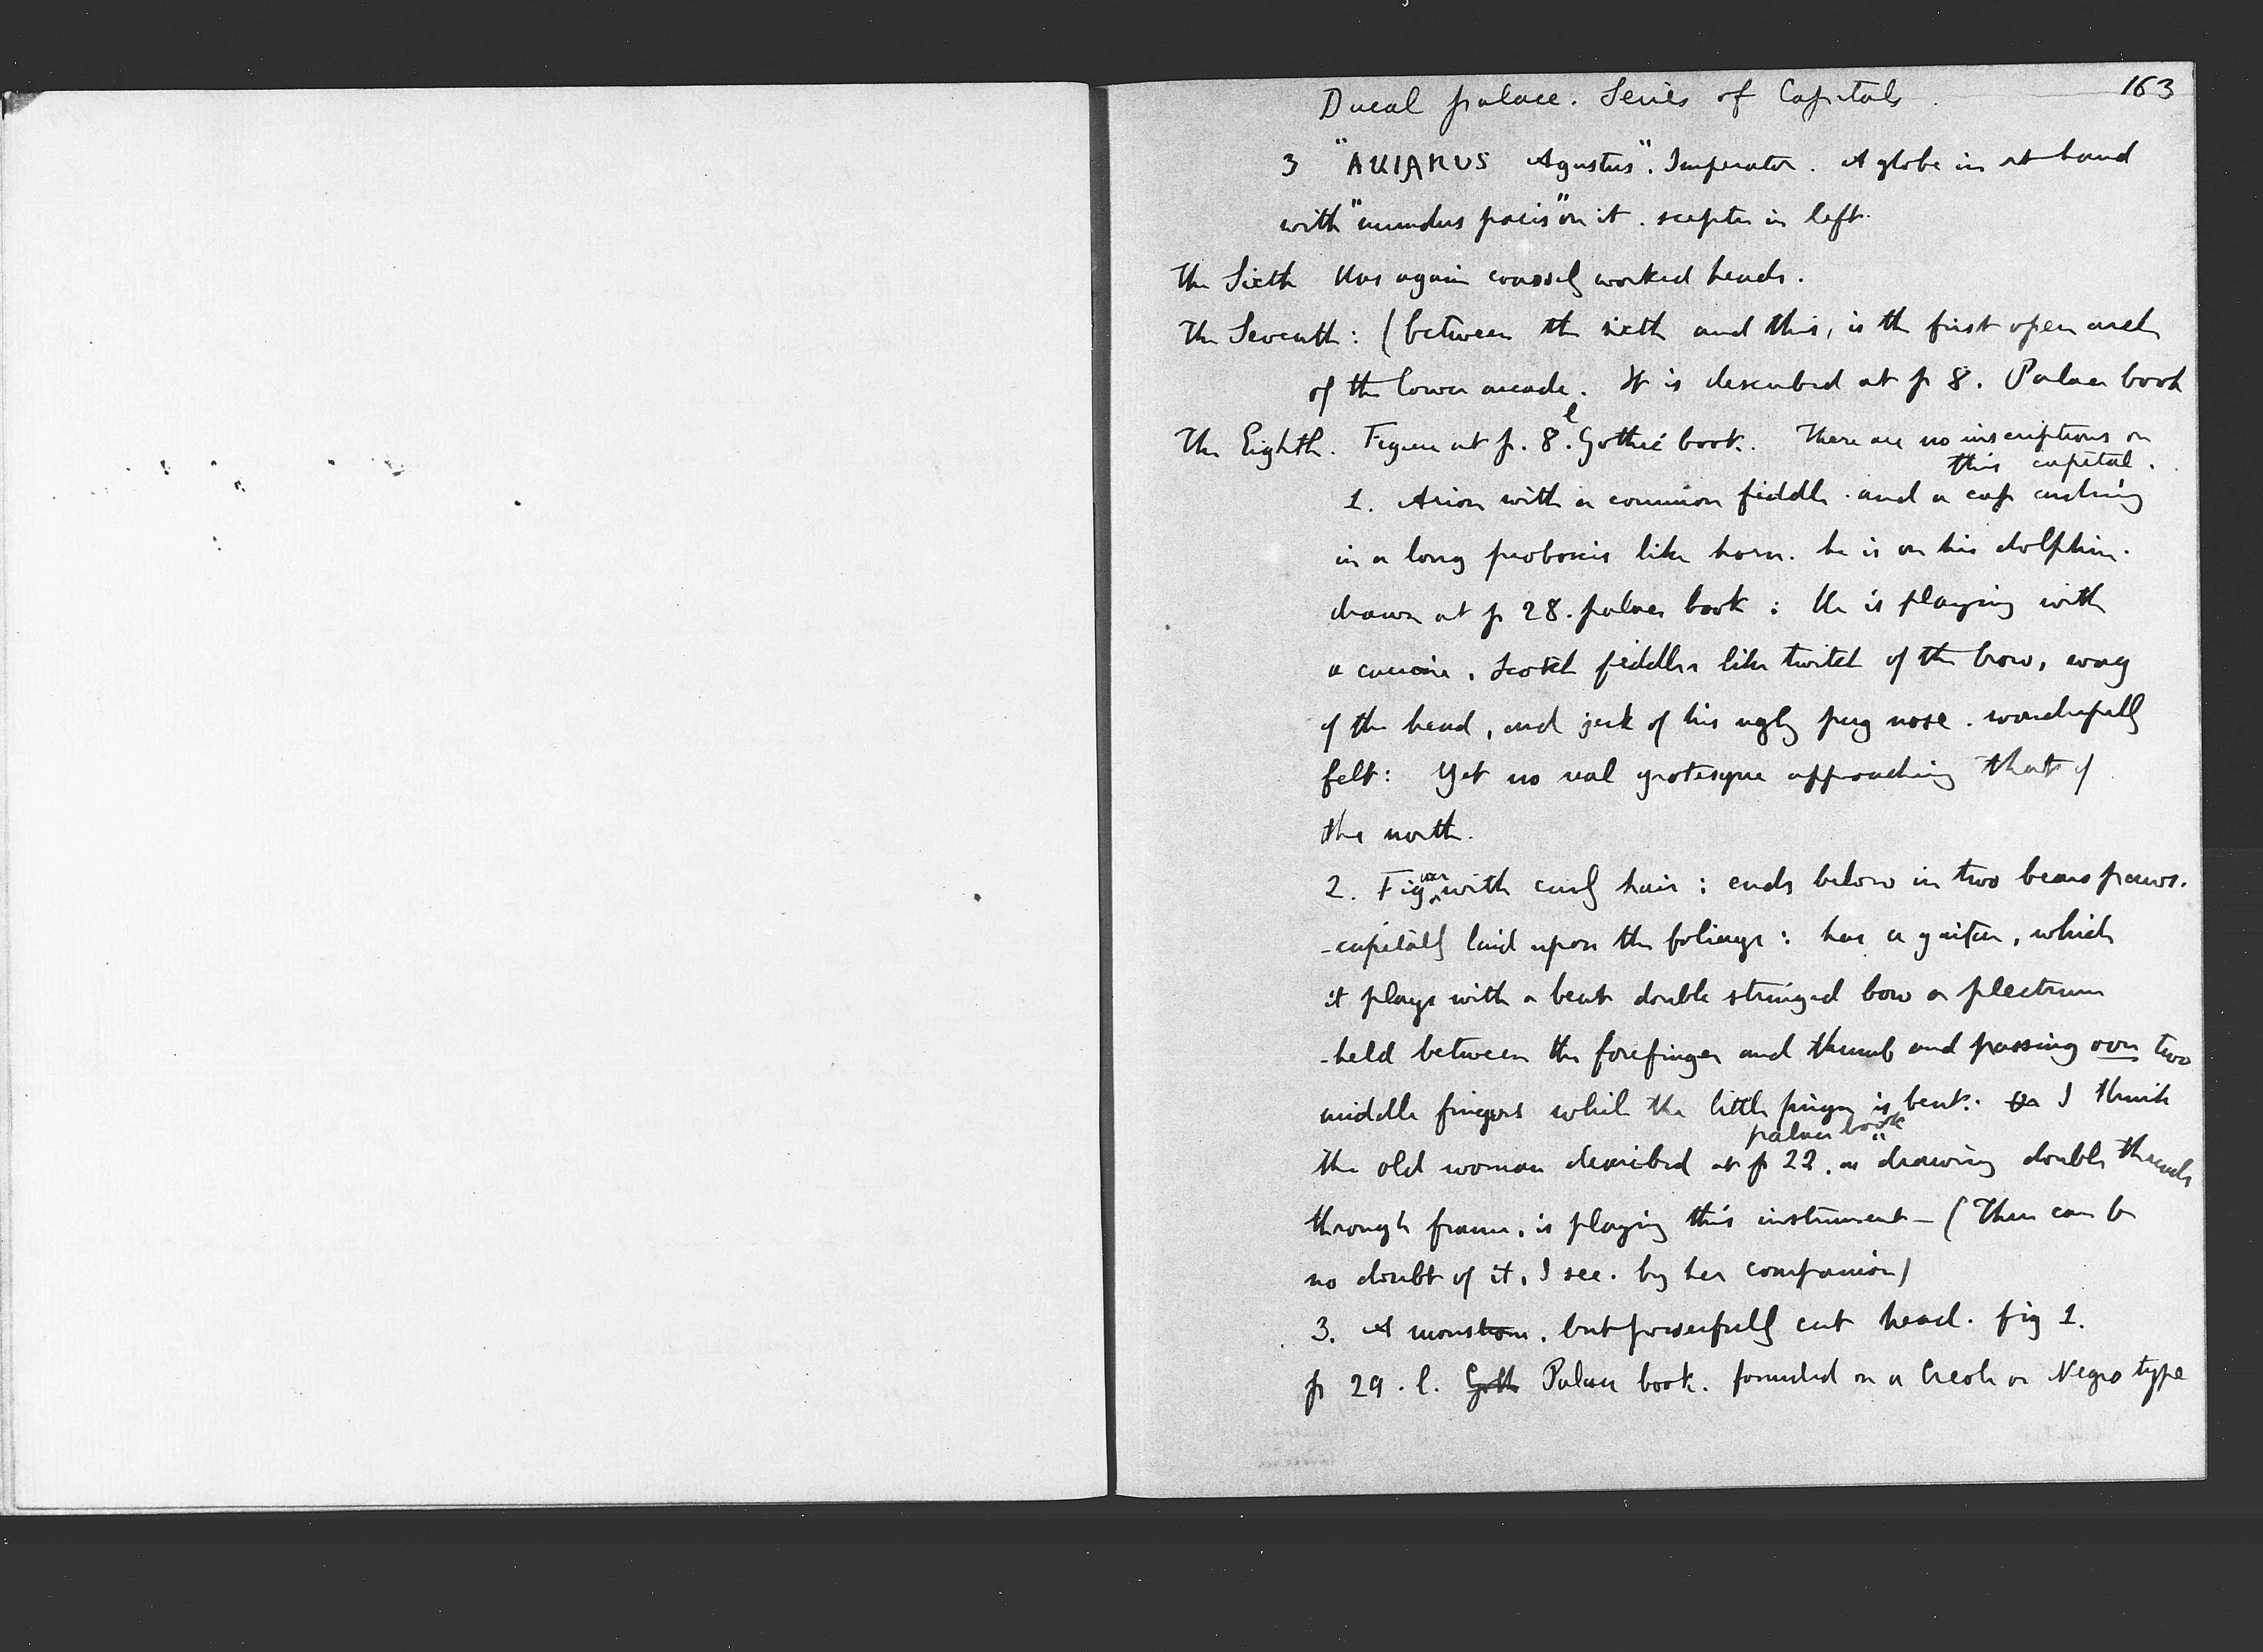 163
Ducal palace. Series of Capitals
3 "AUIARUS Agustus". Imperator. A globe in rt hand
with "mundus pacis" on it. scepter in left.
The Sixth Has again coarsely worked heads.
The Seventh: (between the sixth and this, is the first open arch
of the lower arcade. It is described at p 8. Palace book
The Eighth. Figure at p. 8. l Gothic book. There are no inscriptions on
this capital.
1. Arion with a common fiddle. and a cap ending
in a long proboscis like horn. he is on his dolphin.
drawn at p 28. palace book: He is playing with
a concise, Scotch fiddler like twitch of the brow, wag
of the head, and jerk of his ugly pug nose. wonderfully
felt: Yet no real grotesque approaching that of
the north.
2. Figure with curly hair: ends below in two bears paws.
-capitally laid upon the foliage: has a guitar, which
it plays with a bent double stringed bow or plectrum
-held between the forefinger and thumb and passing over two
middle fingers while the little finger is bent: I think
palace book
the old woman described at p 22. as drawing double threads
through frame, is playing this instrument - (There can be
no doubt of it, I see. by her companion)
3. A monstrous. but powerfully cut head. fig 1.
p 29. l. Goth Palace book. founded on a Creole or Negro type